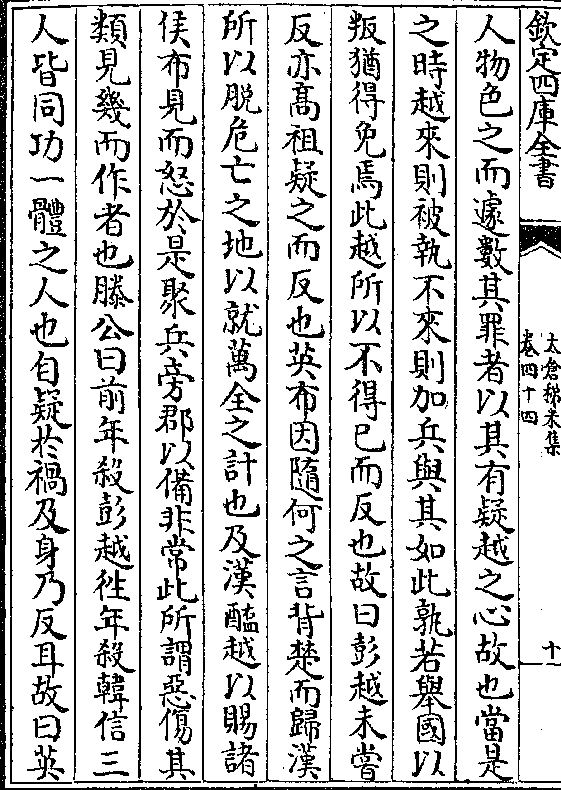 欽定四庫全書
太倉稊米集
卷四十四
十
人物色之而遽數其罪者以其有疑越之心故也當是
之時越來則被執不來則加兵與其如此孰若舉國以
叛猶得免焉此越所以不得已而反也故曰彭越未嘗
反亦髙祖疑之而反也英布因隨何之言背楚而歸漢
所以脱危亡之地以就萬全之計也及漢醢越以賜諸
侯布見而怒於是聚兵旁郡以備非常此所謂惡傷其
類見幾而作者也滕公曰前年殺彭越徃年殺韓信三
人皆同功一體之人也自疑於禍及身乃反耳故曰英